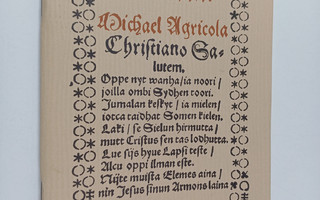 Michael Agricola
Christiano Sa-
lutem.
Oppe nyt wanha/ia noori/
joilla ombi Sydhen toori.
Jumalan keskyt/ia mielen/
iotca taidhat Somen kielen.
Laki/se Sielun hirmutta/
mutt Cristus sen tas lodhutta.
Lue sijs hyue Lapsi teste/
Alcu oppi ilman este.
Nijte muista Elemes aina/
nin Jesus sinun Armons laina